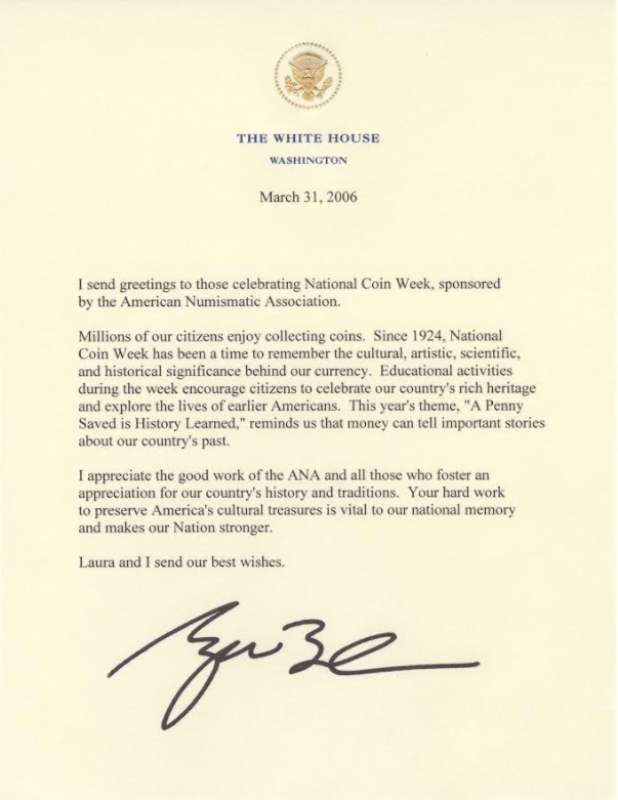 THE WHITE HOUSE
WASHINGTON
March 31, 2006
I send greetings to those celebrating National Coin Week, sponsored
by the American Numismatic Association.
Millions of our citizens enjoy collecting coins.  Since 1924, National
Coin Week has been a time to remember the cultural, artistic, scientific,
and historical significance behind our currency.  Educational activities
during the week encourage citizens to celebrate our country's rich heritage
and explore the lives of earlier Americans.  This year's theme, "A Penny
Saved is History Learned," reminds us that money can tell important stories
about our country's past.
I appreciate the good work of the ANA and all those who foster an
appreciation for our country's history and traditions.  Your hard work
to preserve America's cultural treasures is vital to our national memory
and makes our Nation stronger.
Laura and I send our best wishes.